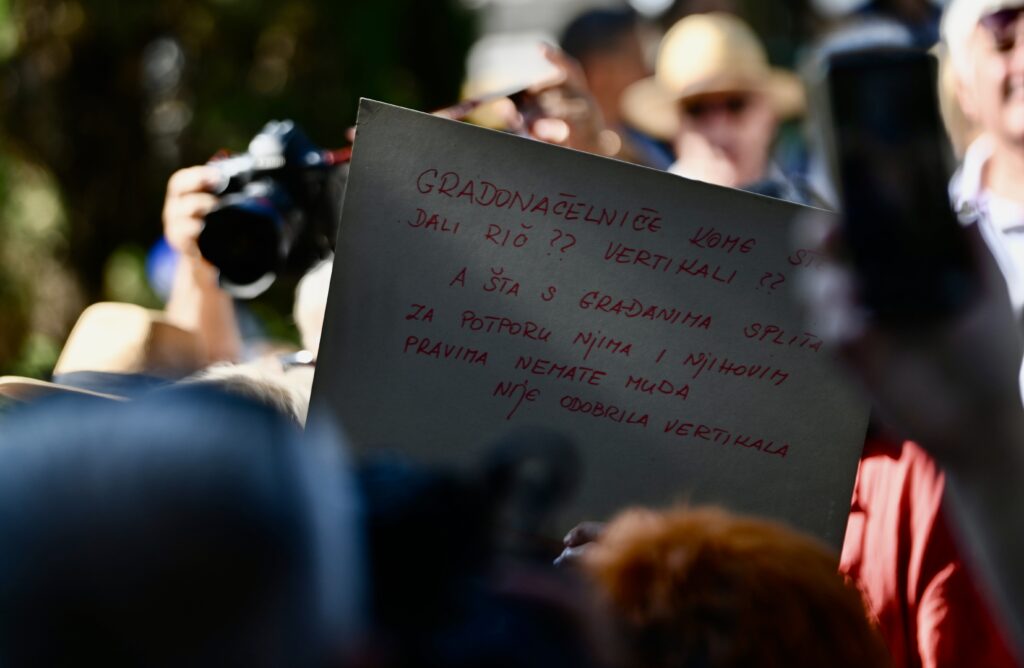 GRADONAČELNIČE KOME
DALI RIČ ?? VERTIKALI ??
A ŠTA S GRAĐANIMA SPLITA
ZA POTPORU NJIMA I NJIHOVIM
PRAVIMA NEMATE MUDA
NIJE ODOBRILA VERTIKALA